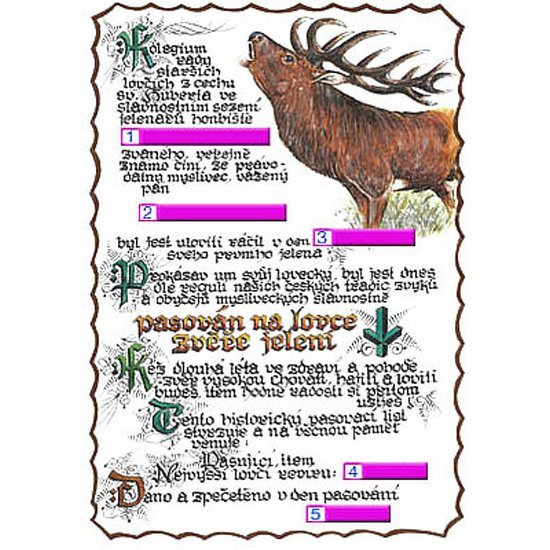 Kolegium
rady
starších
lovčích z cechu
sv. Huberta ve
slavnostním sezení
jelenářů honbiště
1
zvaného, veřejně
známo činí, že pravo-
dátný myslivec, vážený
pán
2
byl jest uloviti ráčil v den 3
svého prvního jelena;
Prokázav um svůj lovecký, byl jest dnes
dle regulí našich českých tradic, zvyků
a obyčejů mysliveckých slavnostně
pasován na lovce
zvěře jelení
Kéž dlouhá léta ve zdraví a pohodě
zvěř vysokou chovati, hájiti a loviti
budeš, item hodně radosti si přitom
užiješ!
Tento historický pasovací list
stvrzuje a na věčnou paměť
věnuje:
Pasující, item
Nejvyšší lovčí revíru: 4
Dáno a zpečetěno v den pasování
5